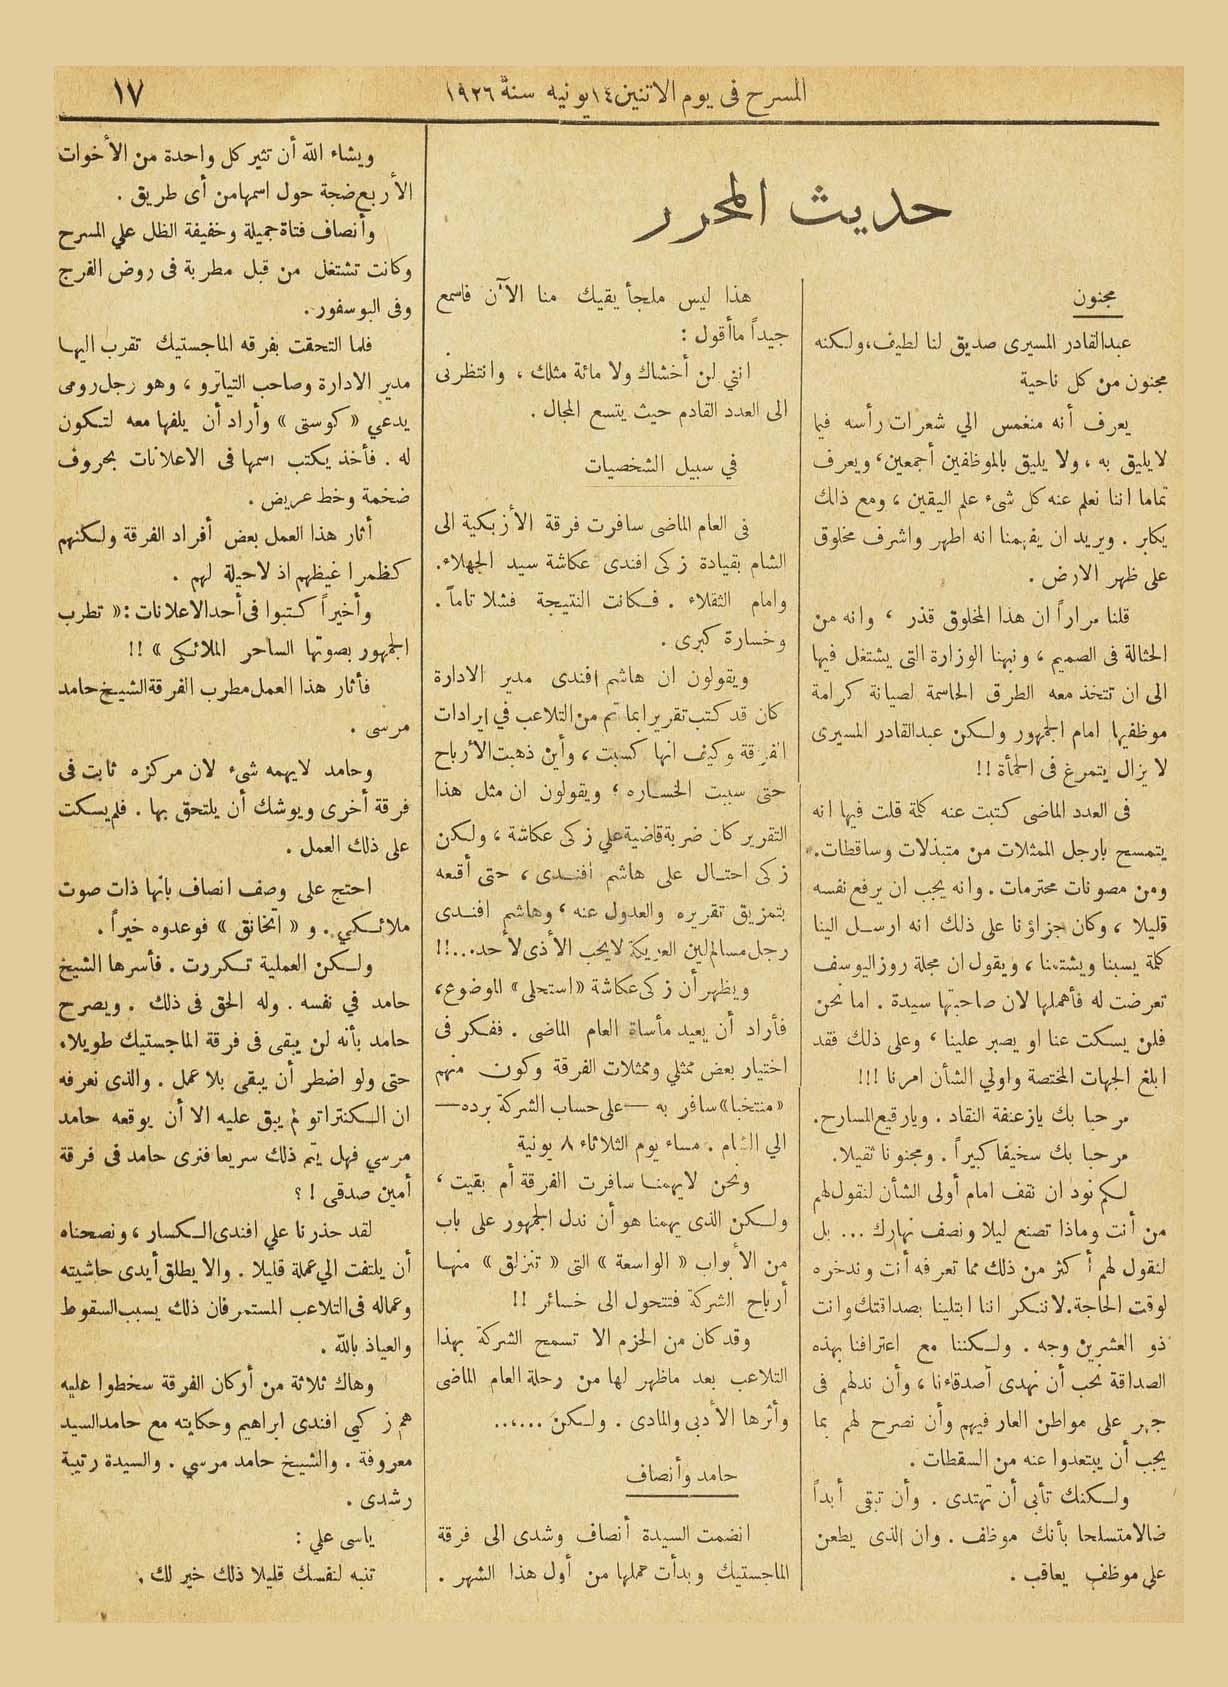 المسرح فى يوم الاثنين ١٤ يونيه سنة ١٩٢٦
١٧
حديث المحرر
مجنون
عبدالقادر المسيرى صديق لنا لطيف، ولكنه
مجنون من كل ناحية
يعرف أنه منغمس الي شعرات رأسه فيما
لايليق به ، ولا يليق بالموظفين أجمعين، ويعرف
تماما اننا نعلم عنه كل شىء علم اليقين ، ومع ذالك
يكابر . ويريد ان يفهمنا انه اطهر واشرف مخلوق
على ظهر الارض .
قلنا مراراً ان هذا المخلوق قذر ، وانه من
الحثالة فى الصميم ، ونبهنا الوزارة التى يشتغل فيها
الى ان تتخذ معه الطرق الحاسمة لصيانة كرامة
موظفيها امام الجمهور ولكن عبدالقادر المسيرى
لا يزال يتمرغ فى الحمأة !!
فى العدد الماضى كتبت عنه كلمة قلت فيها انه
يتمسح بارجل الممثلات من متبذلات وساقطات.
ومن مصونات محترمات . وانه يجب ان يرفع نفسه
قليلا ، وكان جزاؤنا على ذلك انه ارسل الينا
كلمة يسبنا ويشتمنا ، ويقول ان مجلة روز اليوسف
تعرضت له فأهملها لان صاحبتها سيدة . اما نحن
فلن يسكت عنا او يصبر علينا ، وعلى ذلك فقد
ابلغ الجهات المختصة واولي الشأن امرنا !!!
مرحبا بك يازعنفة النقاد . ويارقيع المسارح.
مرحبا بك سخيفا كبيراً . ومجنونا ثقيلا.
لكم نود ان نقف امام أولى الشأن لنقول لهم
من أنت وماذا تصنع ليلا ونصف نهارك ... بل
لنقول لهم أكثر من ذلك مما تعرفه أنت وندخره
لوقت الحاجة. لاننكر اننا ابتلينا بصداقتك وانت
ذو العشرين وجه . ولكننا مع اعترافنا بهذه
الصداقة نحب أن نهدى أصدقاءنا ، وأن ندلهم فى
جهر على مواطن العار فيهم وأن نصرح لهم بما
يجب أن يبتعدوا عنه من السقطات .
ولكنك تأبى أن تهتدى . وأن تبقى أبداً
ضالا متسلحا بأنك موظف . وان الذى يطعن
على موظف يعاقب .
هذا ليس ملجأ يقيك منا الآن فاسمع
جيداً ماأقول :
انني لن أخشاك ولا مائة مثلك ، وانتظرنى
الى العدد القادم حيث يتسع المجال .
في سبيل الشخصيات
فى العام الماضى سافرت فرقة الأزبكية الى
الشام بقيادة زكى افندى عكاشة سيد الجهلاء.
وامام الثقلاء . فكانت النتيجة فشلا تاماً .
وخسارة كبرى .
ويقولون ان هاشم افندى مدير الادارة
كان قد كتب تقريرا بما تم من التلاعب في ايرادات
الفرقة وكيف انها كسبت ، وأين ذهبت الأرباح
حتى سببت الخساره ، ويقولون ان مثل هذا
التقرير كان ضربة قاضية علي زكى عكاشة ، ولكن
زكى احتال على هاشم افندى ، حتى أقنعه
بتمزيق تقريره والعدول عنه ، وهاشم افندى
رجل مسالم لين العريكة لايحب الأذى لأحد...!!
ويظهر أن زكى عكاشة «استحلى» الموضوع،
فأراد أن يعيد مأساة العام الماضى . ففكر فى
اختيار بعض ممثلي وممثلات الفرقة وكون منهم
«منتخبا» سافر به —على حساب الشركة برده—
الي الشام . مساء يوم الثلاثاء ٨ يونية
ونحن لايهمنا سافرت الفرقة أم بقيت ،
ولكن الذى يهمنا هو أن ندل الجمهور على باب
من الأبواب « الواسعة » التى « تنزلق » منها
أرباح الشركة فتتحول الى خسائر !!
وقد كان من الحزم الا تسمح الشركة بهذا
التلاعب بعد ماظهر لها من رحلة العام الماضى
وأثرها الأدبى والمادى . ولكن ......
حامد وأنصاف
انضمت السيدة أنصاف وشدى الى فرقة
الماجستيك وبدأت عملها من أول هذا الشهر .
ويشاء الله أن تثير كل واحدة من الأخوات
الأربع ضجة حول اسمها من أى طريق .
وأنصاف فتاة جميلة وخفيفة الظل علي المسرح
وكانت تشتغل من قبل مطربة فى روض الفرج
وفى البوسفور.
فلما التحقت بفرقه الماجستيك تقرب اليها
مدير الادارة وصاحب التياترو ، وهو رجل رومى
يدعي « كوستى » وأراد أن يلفها معه لتكون
له . فأخذ يكتب اسمها فى الاعلانات بحروف
ضخمة وخط عريض .
أثار هذا العمل بعض أفراد الفرقة ولكنهم
كظمرا غيظهم اذ لاحيلة لهم .
وأخيراً كتبوا فى أحد الاعلانات : « تطرب
الجمهور بصوتها الساحر الملائكى » !!
فأثار هذا العمل مطرب الفرقة الشيخ حامد
مرسى .
وحامد لايهمه شىء لان مركزه ثابت فى
فرقة أخرى ويوشك أن يلتحق بها . فلم يسكت
على ذلك العمل .
احتج على وصف انصاف بانها ذات صوت
ملائكي . و « اتخانق » فوعدوه خيراً .
ولكن العملية تكررت . فأسرها الشيخ
حامد في نفسه . وله الحق فى ذلك . ويصرح
حامد بأنه لن يبقى فى فرقة الماجستيك طويلا.
حتى ولو اضطر أن يبقى بلا عمل . والذى نعرفه
ان الكنتراتو لم يبق عليه الا أن يوقعه حامد
مرسي فهل يتم ذلك سريعا فنرى حامد فى فرقة
أمين صدقى ! ؟
لقد حذرنا علي افندى الكسار ، ونصحناه
أن يلتفت الي عمله قليلا . والا يطلق أيدى حاشيته
وعماله فى التلاعب المستمر فان ذلك يسبب السقوط
والعياذ بالله .
وهاك ثلاثة من أركان الفرقة سخطوا عليه
هم زكي افندى ابراهيم وحكايته مع حامد السيد
معروفة . والشيخ حامد مرسي . والسيدة رتيبة
رشدى .
ياسى علي :
تنبه لنفسك قليلا ذلك خير لك .